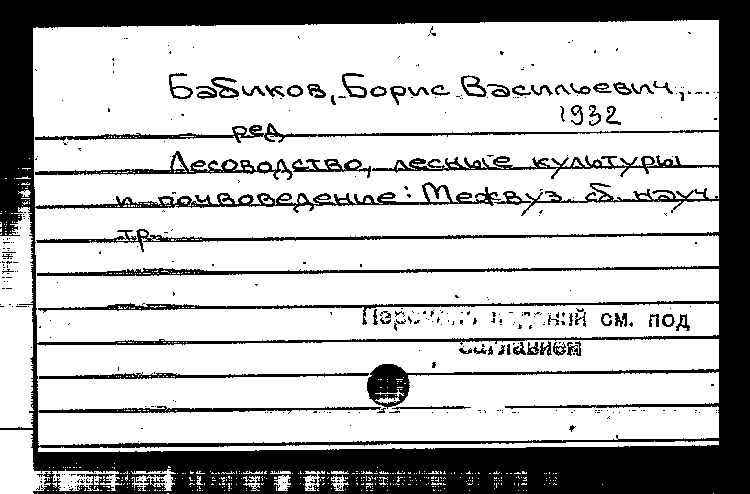 Бабиков, Борис Васильевич,
1932
ред
Лесоводство, лесные культуры
и почвоведение: Межвуз. сб. науч.
тр.
Перечень изданий см. под
заглавием